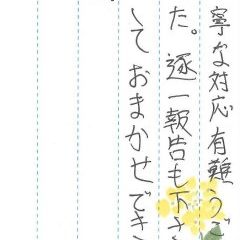 寧な対応有難うご
た。逐一報告も下さ
しておまかせでき